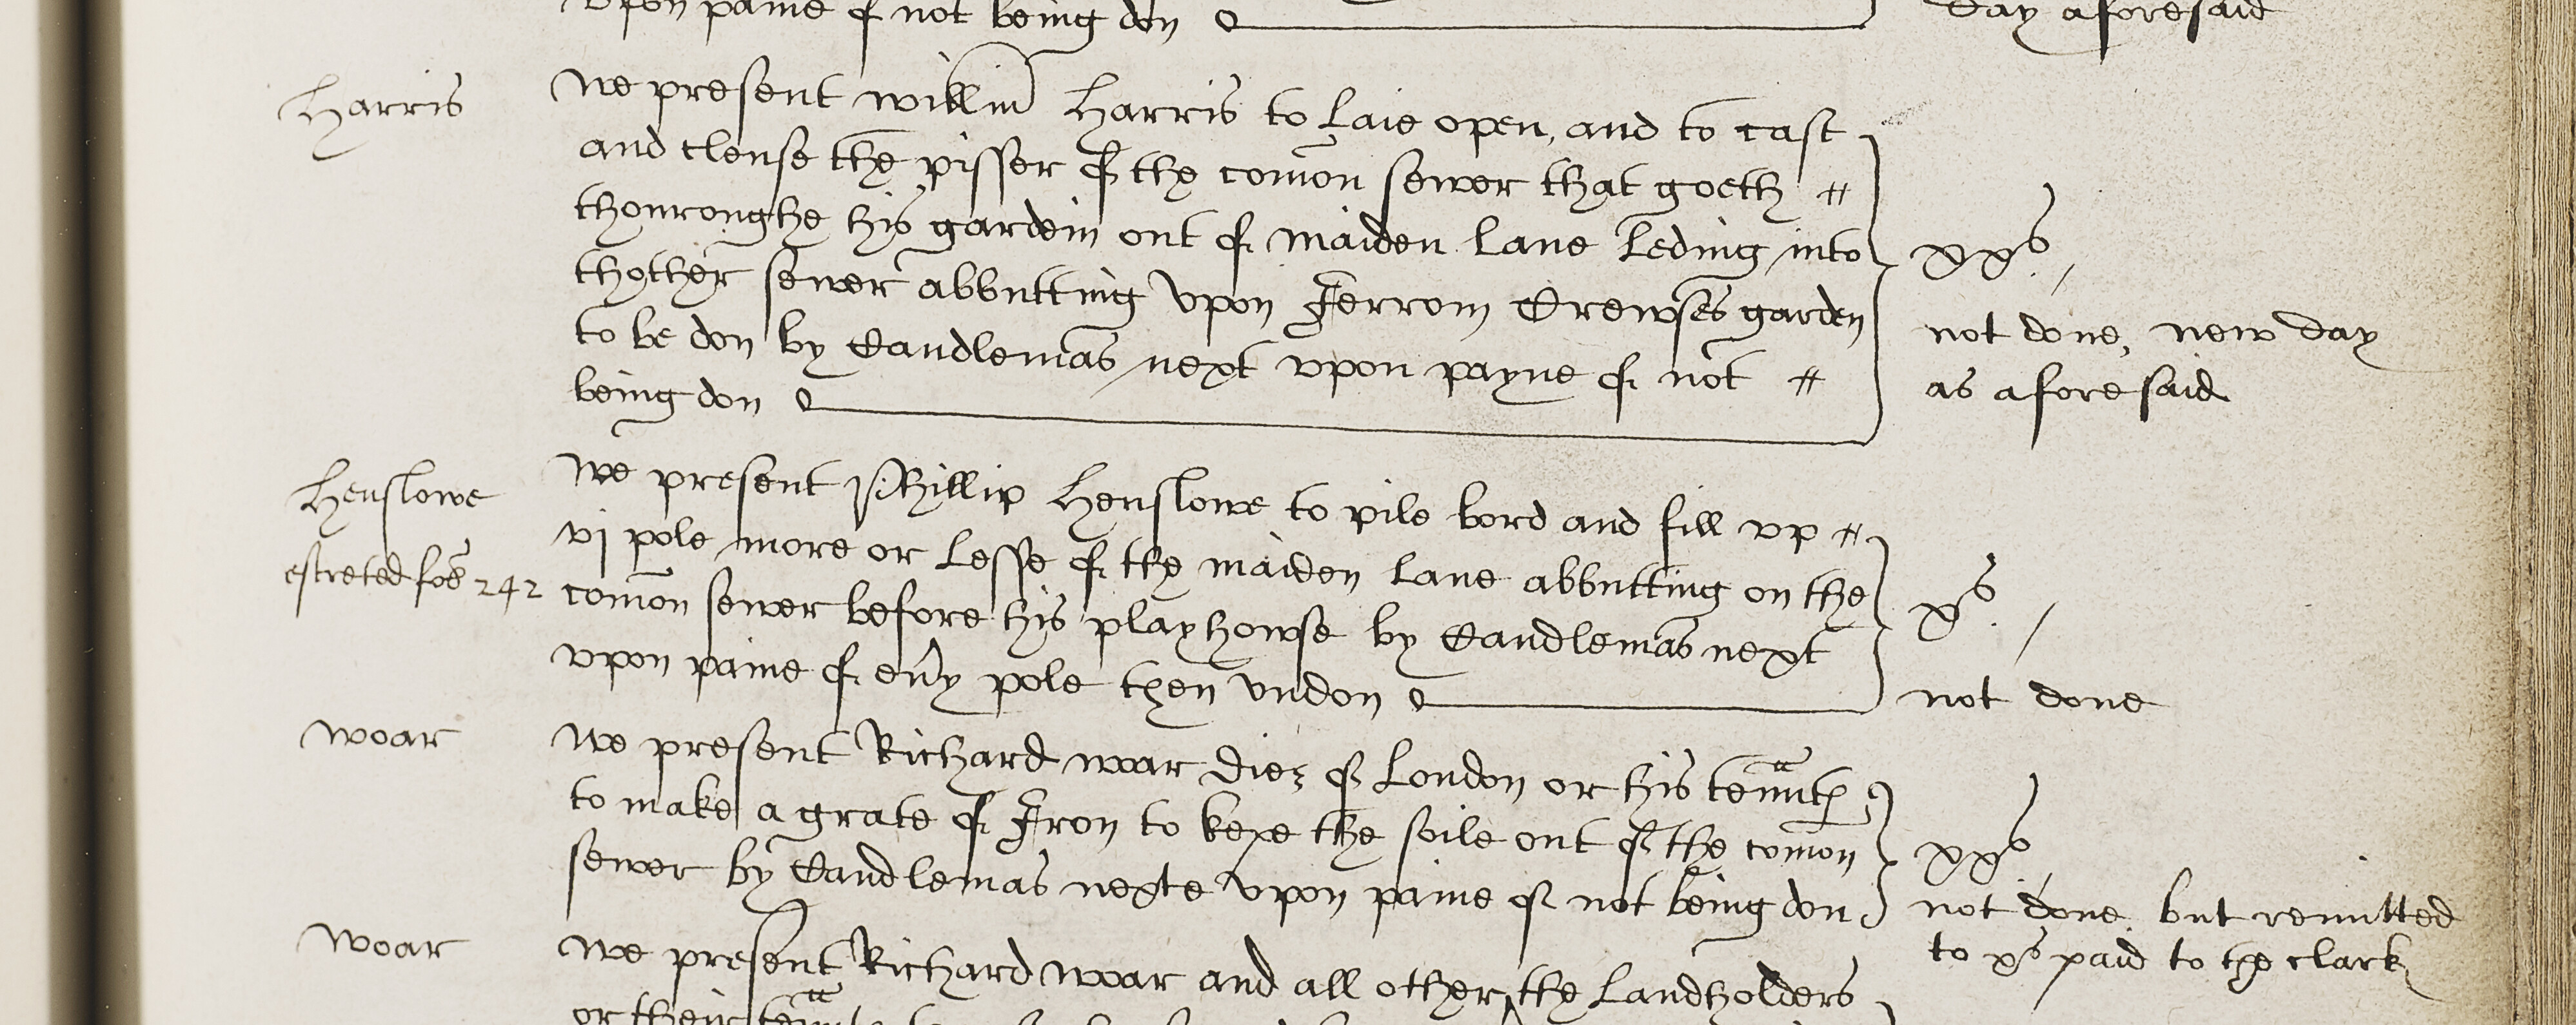 vpon paine of not being don
day aforesaid
Harris
we present willm Harris to laie open, and to cast
and clense the pisser of the comon sewer that goeth
thouroughe his gardein out of maiden lane leding into
thother sewer abbutting vpon Jerrom Drewses garden
to be don by Candlemas next vpon payne of not
being don
xxs
not done, new day
as aforesaid
Henslowe
estreted 242
we present Phillip Henslowe to pile bord and fill vp
vj pole more or lesse of the maiden lane abbutting on the
comon sewer before his play howse by Candlemas next
vpon paine of eūy pole then vndon
xs
not done
woar
we present Richard woar dier of London or his tennts
to make a grate of Iron to kepe the soile out of the comon
sewer by Candlemas nexte vpon paine of not being don
xxs
not done but remitted
to xs paid to the clark
woar
we present Richard woar and all other the Landholders
or their